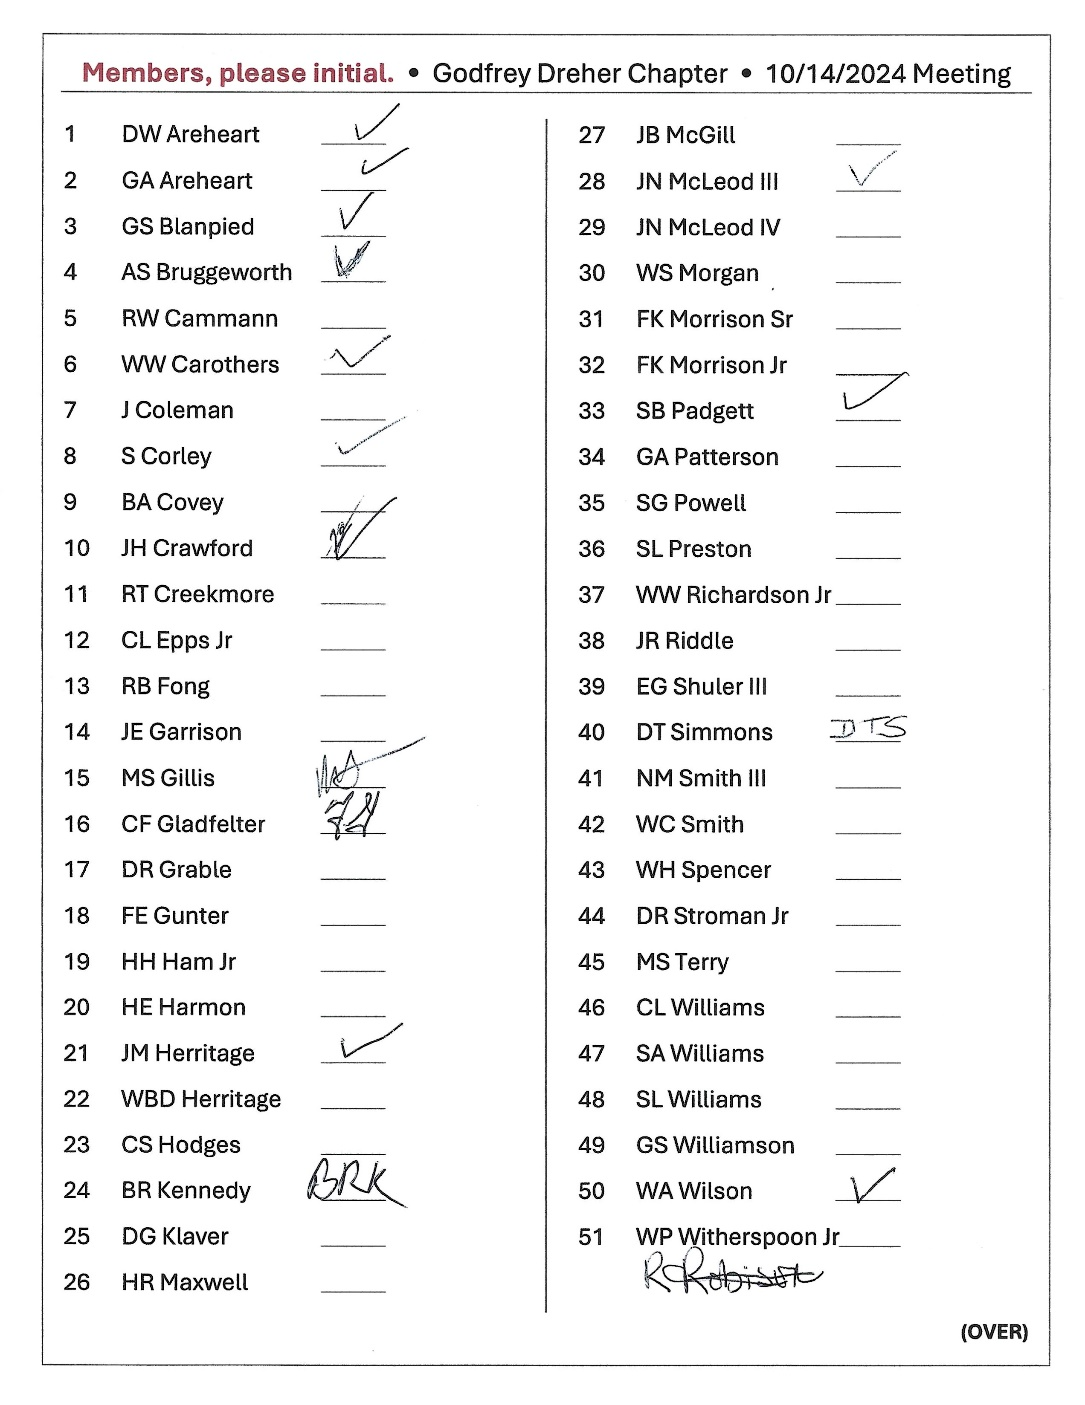 Members, please initial. • Godfrey Dreher Chapter • 10/14/2024 Meeting
1 DW Areheart ✓
2 GA Areheart ✓
3 GS Blanpied ✓
4 AS Bruggeworth ✓
5 RW Cammann
6 WW Carothers ✓
7 J Coleman
8 S Corley ✓
9 BA Covey
10 JH Crawford ✓
11 RT Creekmore
12 CL Epps Jr
13 RB Fong
14 JE Garrison
15 MS Gillis
16 CF Gladfelter
17 DR Grable
18 FE Gunter
19 HH Ham Jr
20 HE Harmon
21 JM Herritage ✓
22 WBD Herritage
23 CS Hodges
24 BR Kennedy BRK
25 DG Klaver
26 HR Maxwell
27 JB McGill
28 JN McLeod III ✓
29 JN McLeod IV
30 WS Morgan
31 FK Morrison Sr
32 FK Morrison Jr
33 SB Padgett ✓
34 GA Patterson
35 SG Powell
36 SL Preston
37 WW Richardson Jr
38 JR Riddle
39 EG Shuler III
40 DT Simmons DTS
41 NM Smith III
42 WC Smith
43 WH Spencer
44 DR Stroman Jr
45 MS Terry
46 CL Williams
47 SA Williams
48 SL Williams
49 GS Williamson
50 WA Wilson ✓
51 WP Witherspoon Jr
(OVER)